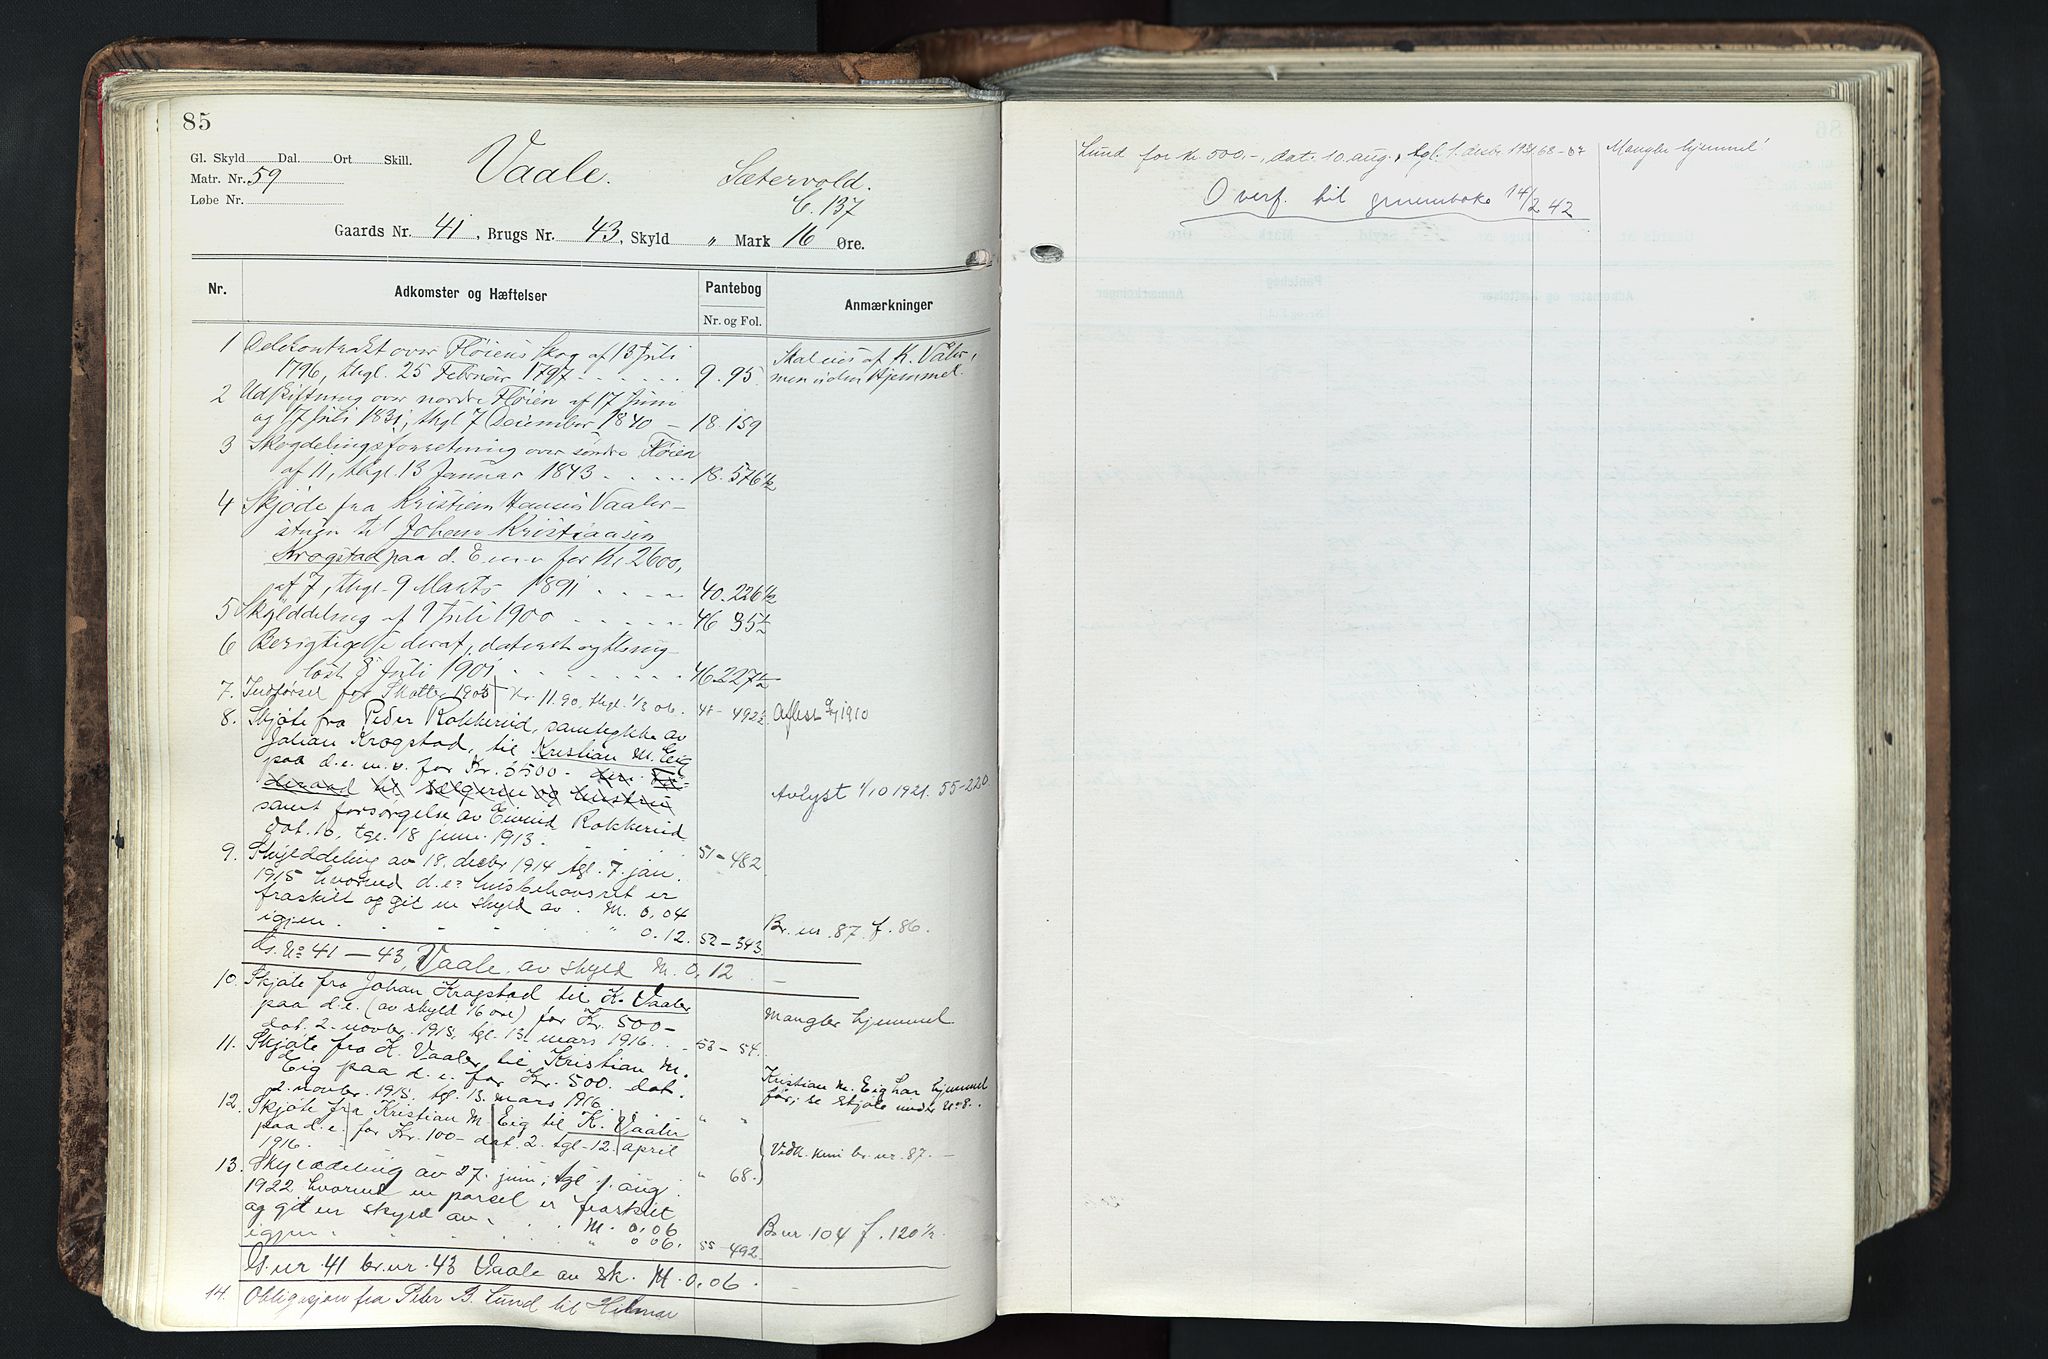 85
Gl. Skyld Dal. Ort Skill.
Matr. Nr. 59
Løbe Nr.
Vaale.
Sætervold.
C. 137
Gaards Nr. 41, Brugs Nr. 43, Skyld " Mark 16 Øre.
Nr. Adkomster og Hæftelser Pantebog Anmærkninger
Nr. og Fol.
1 Delekontrakt over Fløiens Skog af 13 Juli
1796, thgl. 25 Februar 1797 - - - - - - 9. 95
Skal eies af K. Vaaler
men uden Hjemmel.
2 Udskiftning over nordre Fløien af 17 Juni
og 17 Juli 1831, thgl 7 December 1840 - 18. 159
3 Skogdelingsforretning over søndre Fløien
af 11, thgl. 13 Januar 1843 . . . . . 18. 576 1/2
4 Skjøde fra Kristien Hansen Vaaler-
stuen til Johan Kristiaasen
Krogstad paa d. E. m. v. for Kr 2600,
af 7, thgl. 9 Marts 1891 . . . - - 40. 226 1/2
5 Skylddeling af 9 Juli 1900 - - - - - - 46 35 1/2
6 Berigtigelse deraf, dateret og thing-
læst 8 Juli 1901 . - - - - - - - 46 227 1/2
7. Indførsel for Skatter 1905 Kr. 11.90, thgl. 1/3 06. 48 - 492 1/2 Aflest 1910
8. Skjøte fra Peder Rokkerud, samtykke av
Johan Krogstad, til Kristian M. Eig
paa d. e. m. v. for Kr. 3500. -
til sælgeren og hustru
Avlyst 1/10 1921. 55-220
samt forsørgelse av Eivind Rokkerud
dat. 16, tgl. 18 juni 1913. 51 - 482
9. Skylddeling av 18. decbr 1914 tgl. 7. jan.
1915 hvorved d. e. husbehovsret er
fraskilt og git en skyld av . M. 0,04
Br. nr. 87. f. 86.
igjen . - - - - " 0.12. 52-343
G. No 41 - 43, Vaale, av skyld M. 0,12
10. Skjøte fra Johan Krogstad til K. Vaaler
paa d. e. (av skyld 16 øre) for Kr. 500-
Mangler hjemmel
dat. 2. novbr. 1915, tgl. 13. mars 1916. . - 53 - 54.
11. Skjøte fra K. Vaaler til Kristian M.
Eig paa d. e. for Kr. 500. dat.
Kristian M. Eig har hjemmel
før, se skjøte under No 8.
2. novbr. 1915, tgl. 13. mars 1916. " "
12. Skjøte fra Kristian M. Eig til K. Vaaler
paa d. e. for Kr. 100- dat. 2. tgl. 12. april
1916. " 68.
Vedk. kun br. nr. 87. -
13. Skylddeling av 27. juni, tgl. 1. aug.
1922 hvorved en parsel er fraskilt
og git en skyld av . . M. 0,06
B nr. 104 f. 120 1/2.
igjen . . . . . " 0 06. 55-492
G. nr. 41 br. nr. 43 Vaale av sk. M. 0,06 .
14. Obligasjon fra Peter B. Lund til Hilmar
Lund for kr. 500.-, dat. 10. aug., tgl. 1. desbr 1931 68-67 Mangler hjemmel
Overf. til grunnboka 14/2 42